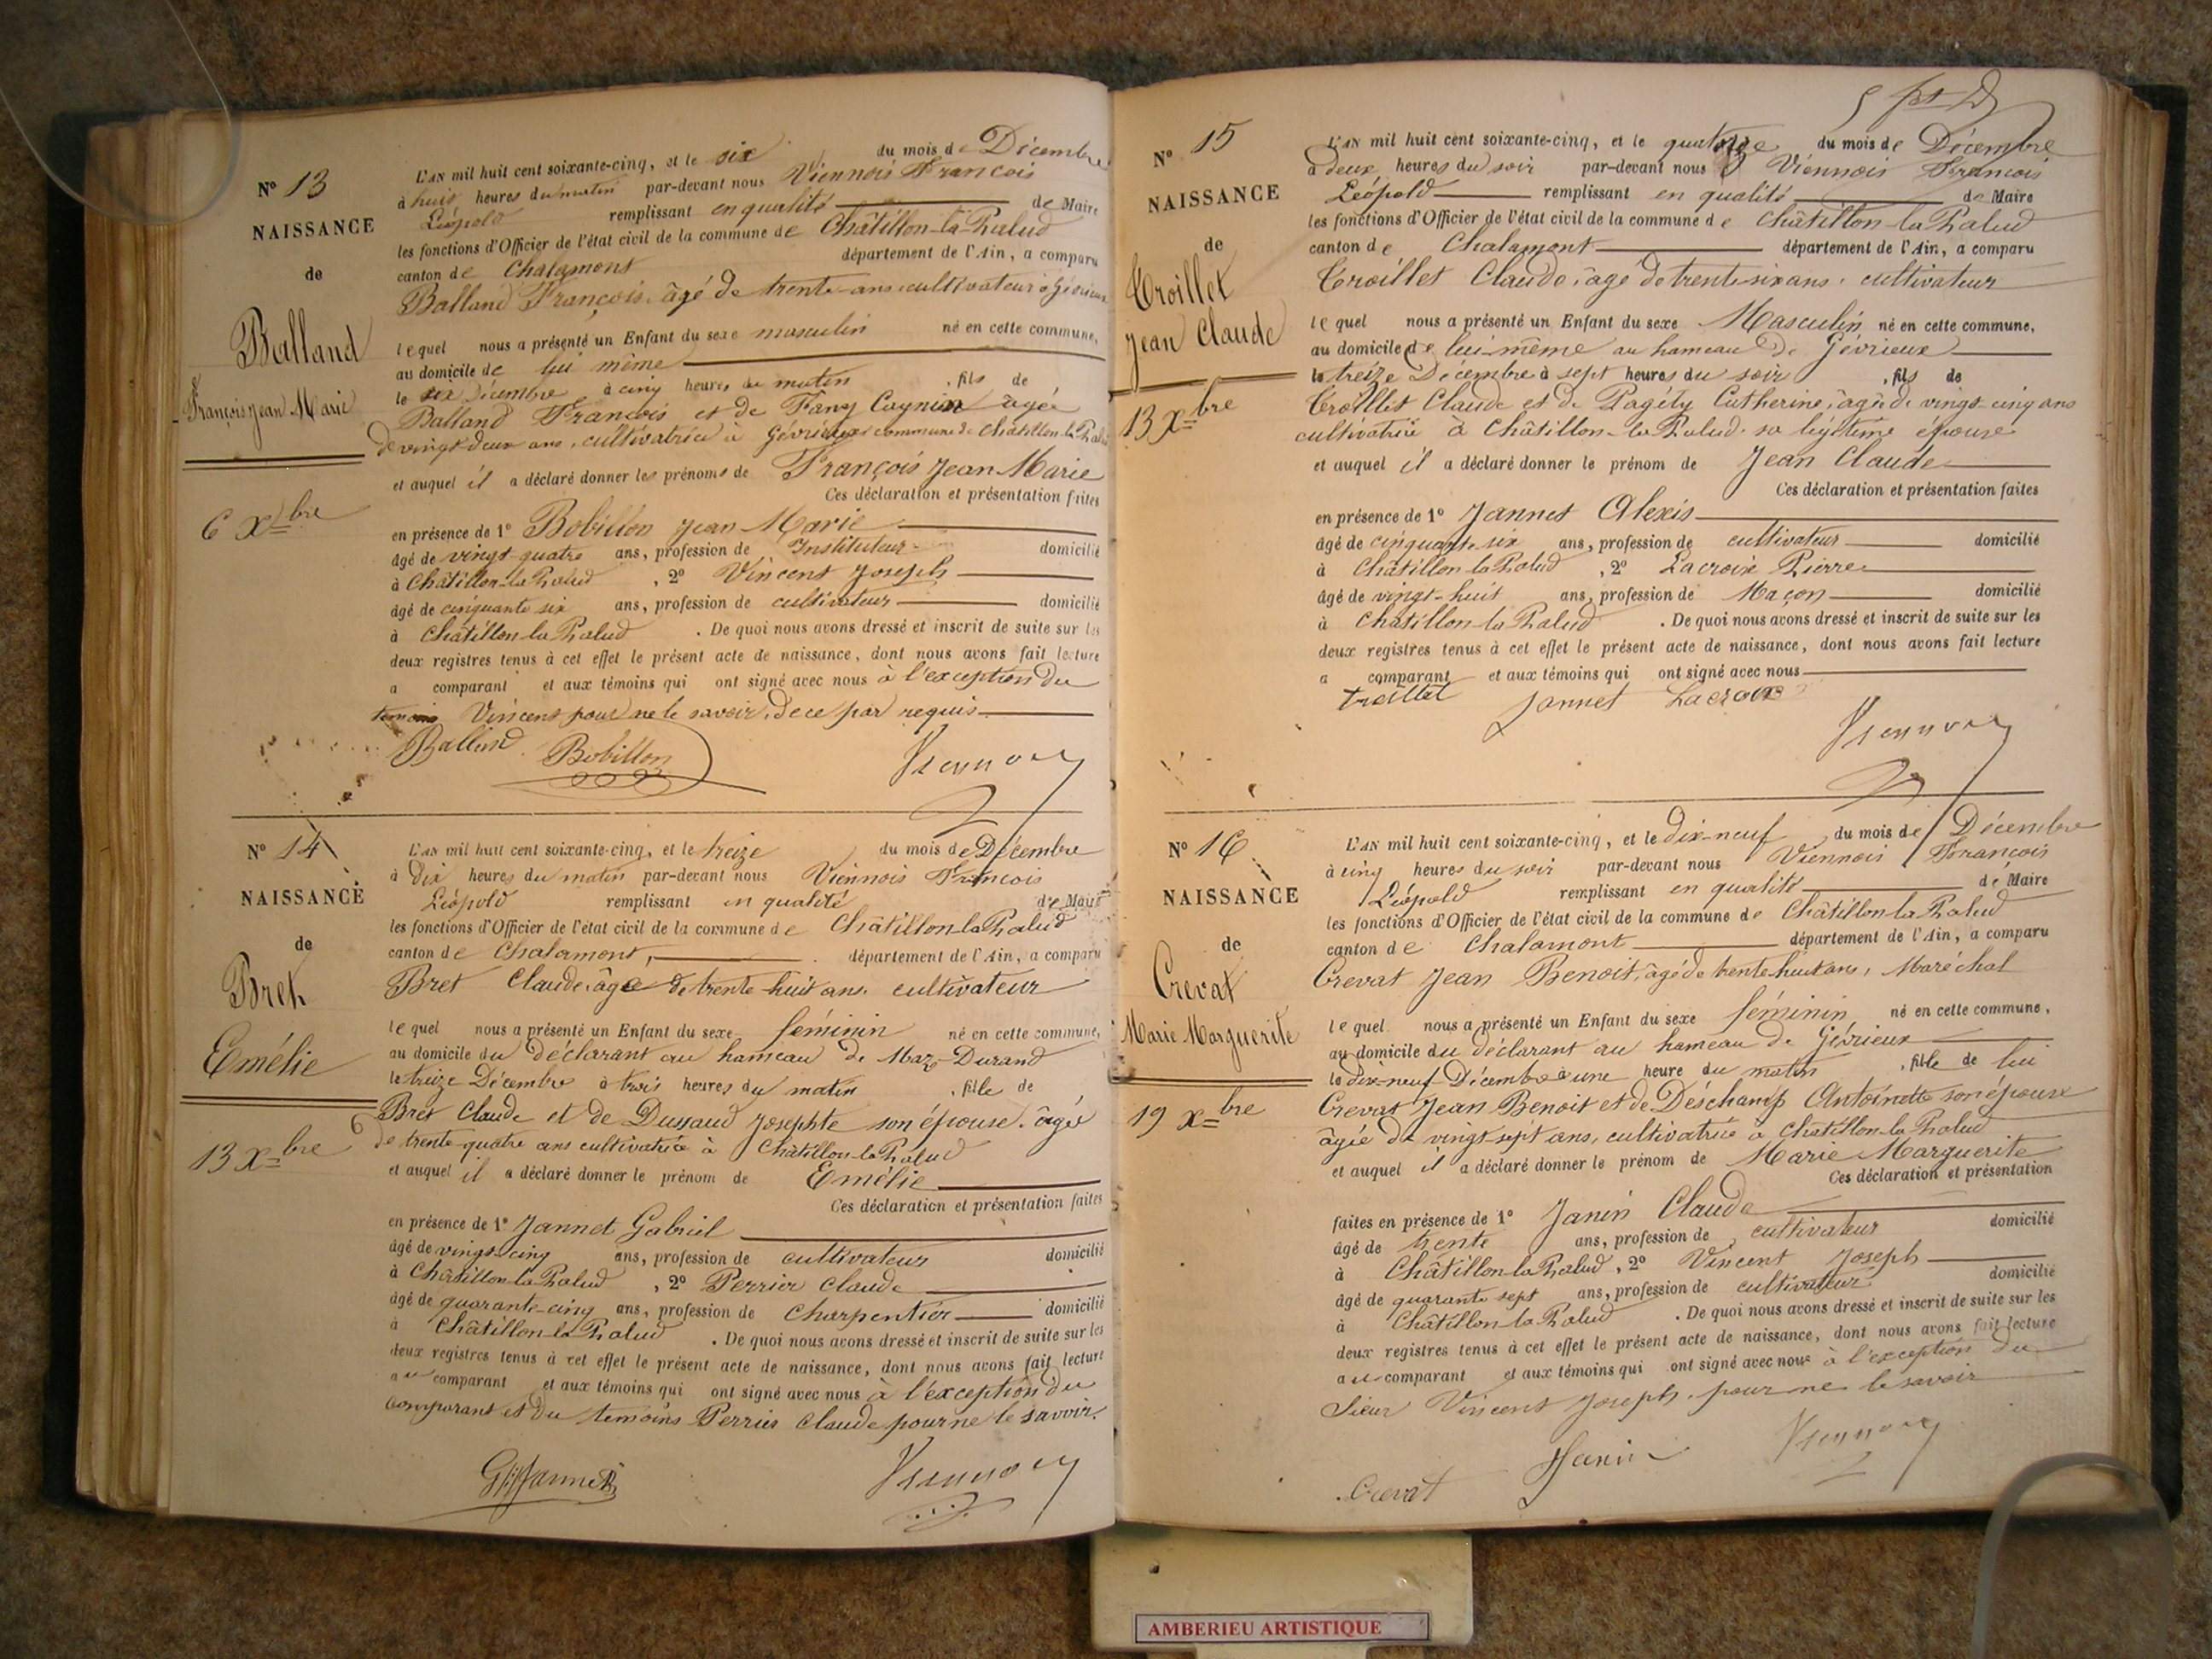 Nº 13
NAISSANCE
de
Balland
François Jean Marie
6 Xbre
L'AN mil huit cent soixante-cinq, et le six du mois de Décembre
à huit heures du matin par-devant nous Viennois François
Léopold remplissant en qualité de Maire
les fonctions d'Officier de l'état civil de la commune de Châtillon-la-Palud
canton de Chalamont département de l'Ain, a comparu
Balland François, âgé de trente ans cultivateur à Gévrieux
lequel nous a présenté un Enfant du sexe masculin né en cette commune,
au domicile de lui même
le six Décembre à cinq heures du matin, fils de
Balland François et de Fany Cagnin âgée
de vingt deux ans, cultivatrice à Gévrieux commune de Châtillon la Palud
et auquel il a déclaré donner les prénoms de François Jean Marie
Ces déclaration et présentation faites
en présence de 1º Bobillon Jean Marie
âgé de vingt quatre ans, profession de Instituteur domicilié
à Châtillon-la Palud, 2º Vincent Joseph
âgé de cinquante six ans, profession de cultivateur domicilié
à Châtillon la Palud. De quoi nous avons dressé et inscrit de suite sur les
deux registres tenus à cet effet le présent acte de naissance, dont nous avons fait lecture
a comparant et aux témoins qui ont signé avec nous à l'exception du
témoins Vincent pour ne le savoir, de ce par requis
Balland Bobillon Viennois
Nº 14
NAISSANCE
de
Bret
Emélie
13 Xbre
L'AN mil huit cent soixante-cinq, et le treize du mois de Décembre
à dix heures du matin par-devant nous Viennois François
Léopold remplissant en qualité de Maire
les fonctions d'Officier de l'état civil de la commune de Châtillon-la Palud
canton de Chalamont, département de l'Ain, a comparu
Bret Claude âgé de trente-huit ans, cultivateur
lequel nous a présenté un Enfant du sexe féminin né en cette commune,
au domicile du déclarant au hameau de Maz-Durand
le treize Décembre à trois heures du matin, fille de
Bret Claude et de Dussaud Josephte son épouse, âgée
de trente-quatre ans cultivatrice à Châtillon-la Palud
et auquel il a déclaré donner le prénom de Emélie
Ces déclaration et présentation faites
en présence de 1º Jannet Gabriel
âgé de vingt-cinq ans, profession de cultivateur domicilié
à Châtillon-la-Palud, 2º Perrier Claude
âgé de quarante-cinq ans, profession de Charpentier domicilié
à Châtillon la Palud. De quoi nous avons dressé et inscrit de suite sur les
deux registres tenus à cet effet le présent acte de naissance, dont nous avons fait lecture
au comparant et aux témoins qui ont signé avec nous à l'exception du
comparant et du temoins Perrier Claude pour ne le savoir.
Jannet Viennois
Nº 15
NAISSANCE
de
Troillet
Jean Claude
13 Xbre
L'AN mil huit cent soixante-cinq, et le quatorze du mois de Décembre
à deux heures du soir par-devant nous Viennois François
Léopold remplissant en qualité de Maire
les fonctions d'Officier de l'état civil de la commune de Châtillon-la Palud
canton de Chalamont département de l'Ain, a comparu
Troillet Claude, âgé de trente-six ans, cultivateur
lequel nous a présenté un Enfant du sexe Masculin né en cette commune,
au domicile de lui-même au hameau de Gévrieux
le treize Décembre à sept heures du soir, fils de
Troillet Claude et de Pagély Catherine, âgée de vingt-cinq ans
cultivatrice à Châtillon-la Palud. sa légitime épouse
et auquel il a déclaré donner le prénom de Jean Claude
Ces déclaration et présentation faites
en présence de 1º Jannet Alexis
âgé de cinquante six ans, profession de cultivateur domicilié
à Châtillon la Palud, 2º Lacroix Pierre
âgé de vingt-huit ans, profession de Maçon domicilié
à Châtillon-la Palud. De quoi nous avons dressé et inscrit de suite sur les
deux registres tenus à cet effet le présent acte de naissance, dont nous avons fait lecture
a comparant et aux témoins qui ont signé avec nous
troillet Jannet Lacroix
Viennois
Nº 16
NAISSANCE
de
Crevat
Marie Marguerite
19 Xbre
L'AN mil huit cent soixante-cinq, et le dix-neuf du mois de Décembre
à cinq heures du soir par-devant nous Viennois François
Léopold remplissant en qualité de Maire
les fonctions d'Officier de l'état civil de la commune de Châtillon-la Palud
canton de Chalamont département de l'Ain, a comparu
Crevat Jean Benoit, âgé de trente huit ans, Maréchal
lequel nous a présenté un Enfant du sexe féminin né en cette commune,
au domicile du déclarant au hameau de Gévrieux
le dix-neuf Décembre à une heure du matin, fille de lui
Crevat Jean Benoit et de Déschamp Antoinette son épouse
âgée de vingt-sept ans, cultivatrice à Châtillon-la Palud
et auquel il a déclaré donner le prénom de Marie Marguerite
Ces déclaration et présentation
faites en présence de 1º Janin Claude
âgé de trente ans, profession de cultivateur domicilié
à Châtillon-la Palud, 2º Vincent Joseph
âgé de quarante sept ans, profession de cultivateur domicilié
à Châtillon la Palud. De quoi nous avons dressé et inscrit de suite sur les
deux registres tenus à cet effet le présent acte de naissance, dont nous avons fait lecture
au comparant et aux témoins qui ont signé avec nous à l'exception du
Sieur Vincent Joseph, pour ne le savoir
Crevat Janin Viennois
AMBERIEU ARTISTIQUE